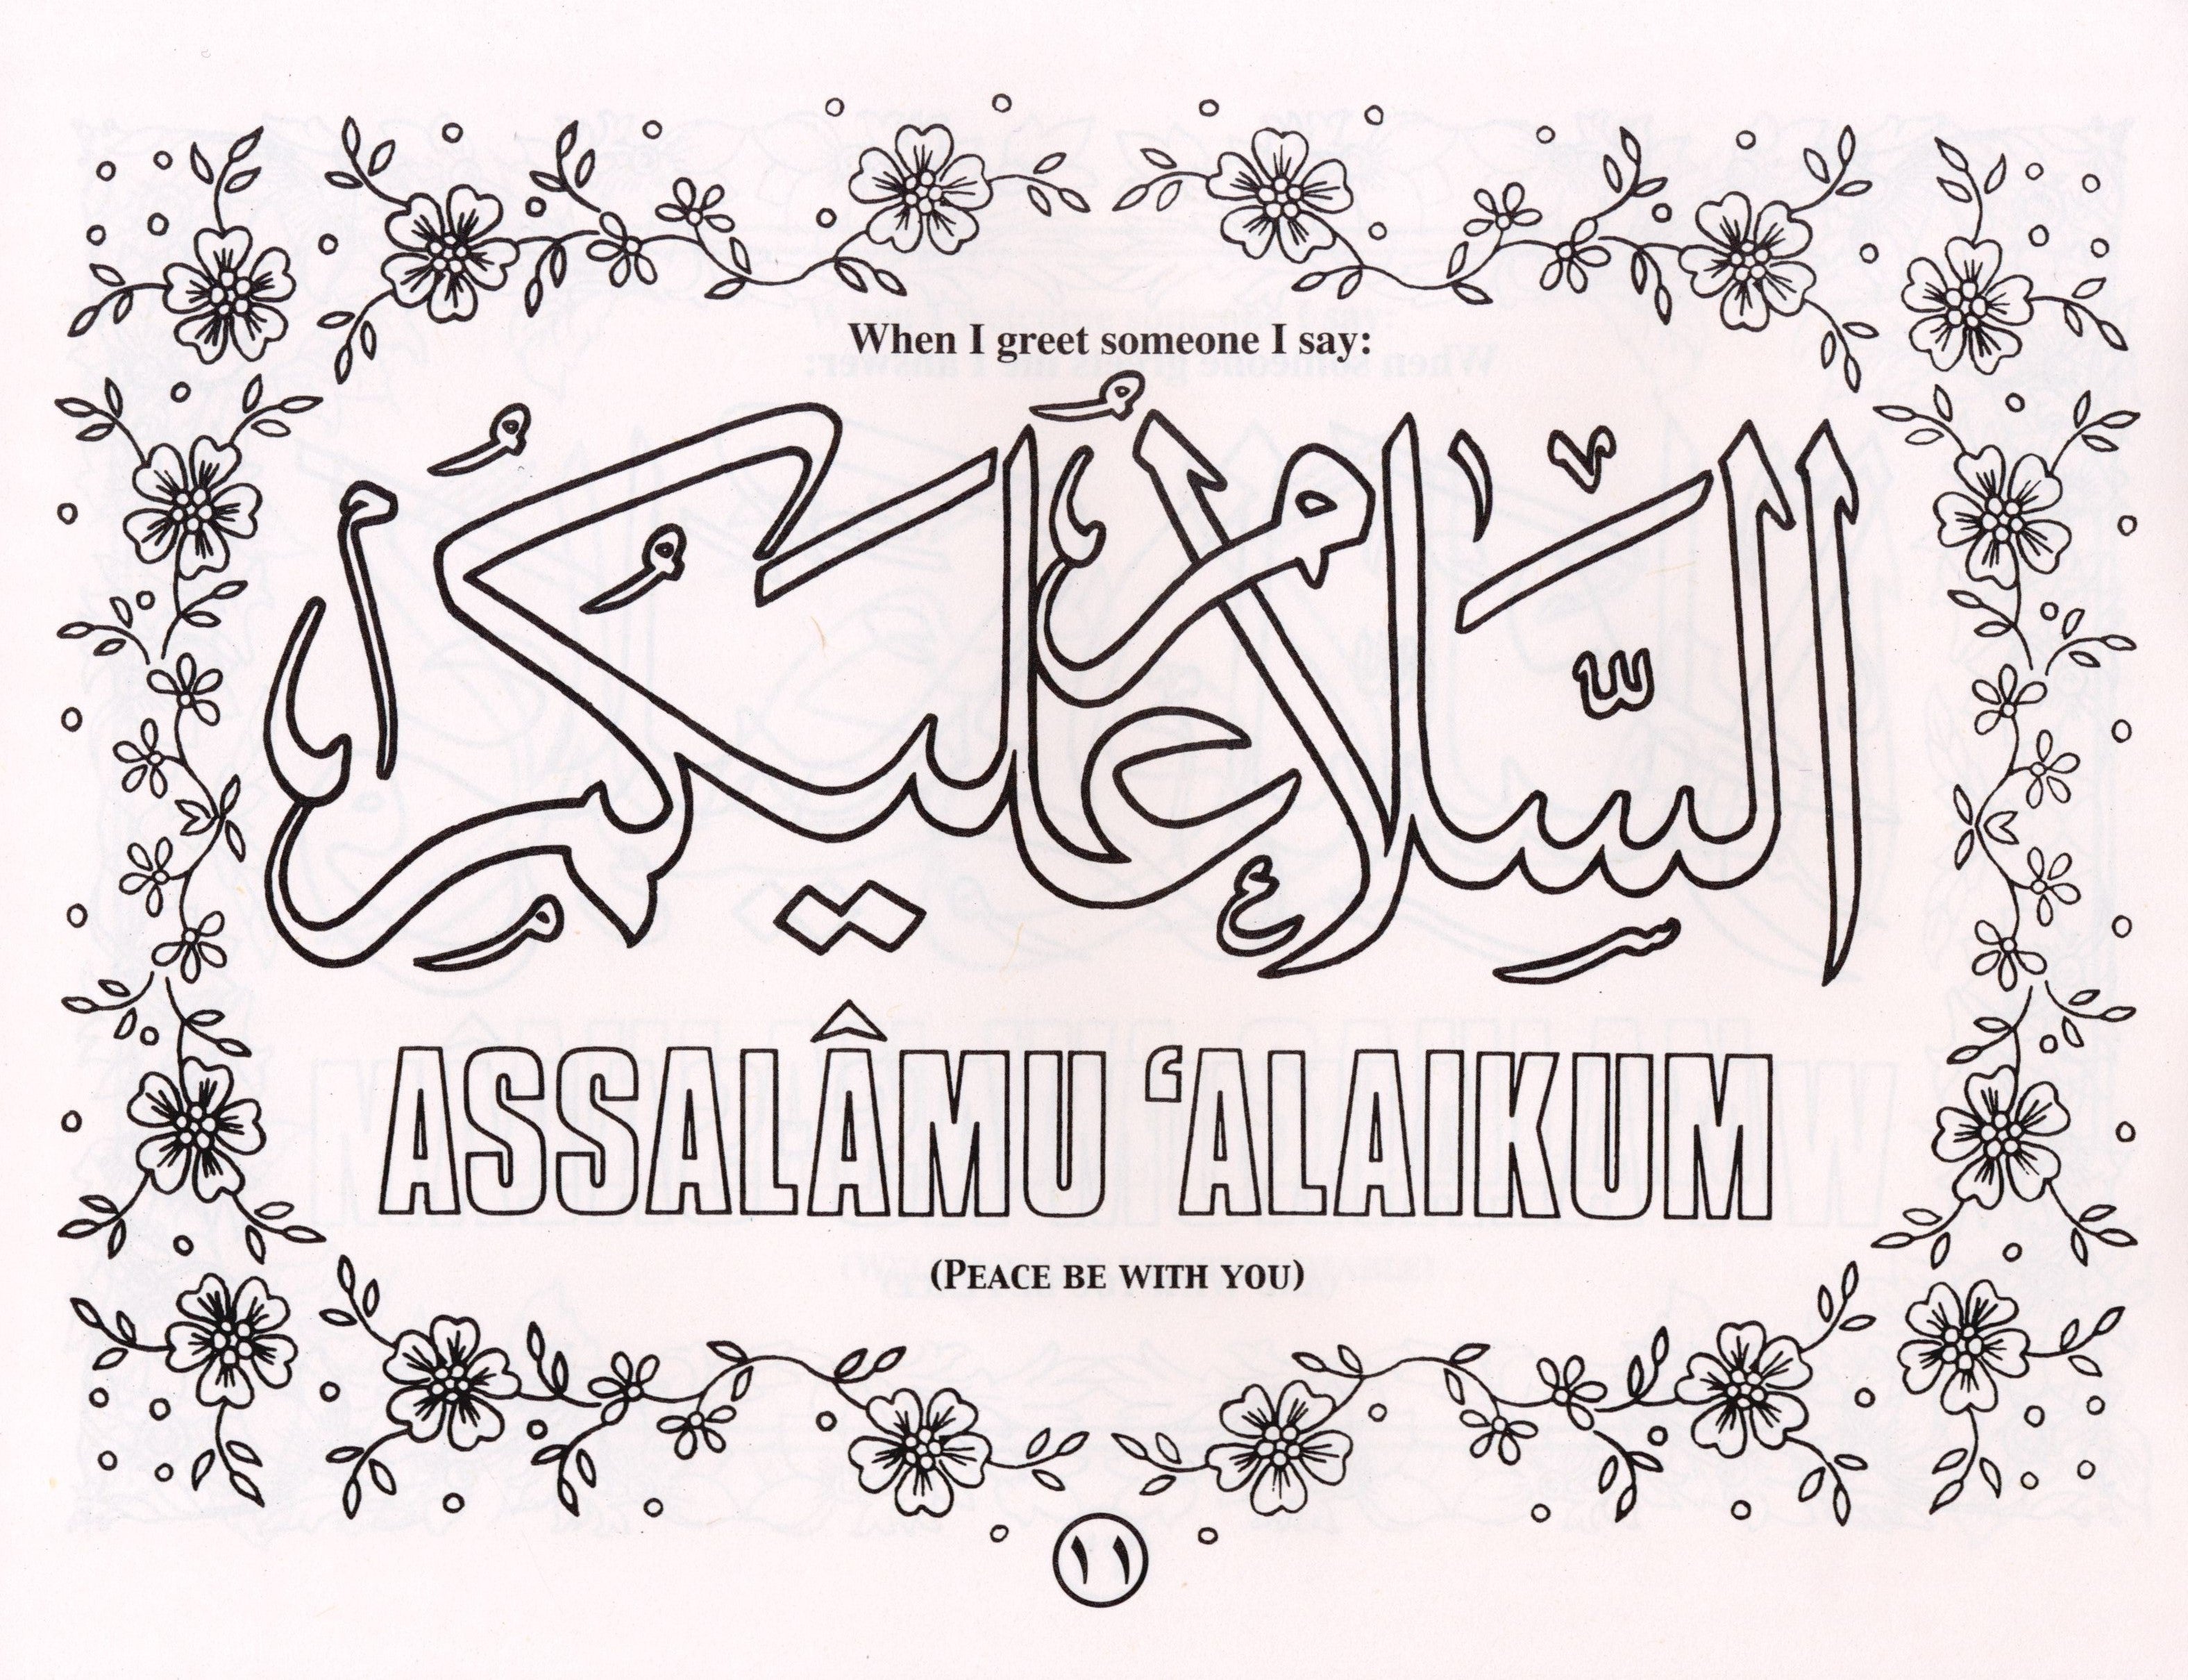 When I greet someone I say:
السلام عليكم
ASSALÂMU ‘ALAIKUM
(PEACE BE WITH YOU)
١١